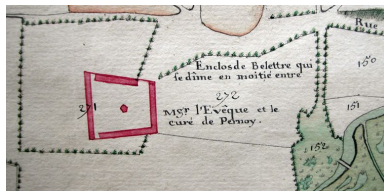 Rue
Enclos de Belettre qui
se dîme en moitié entre
150
272
271
Mgr. l'Evêque et le
curé de Pernay.
151
152